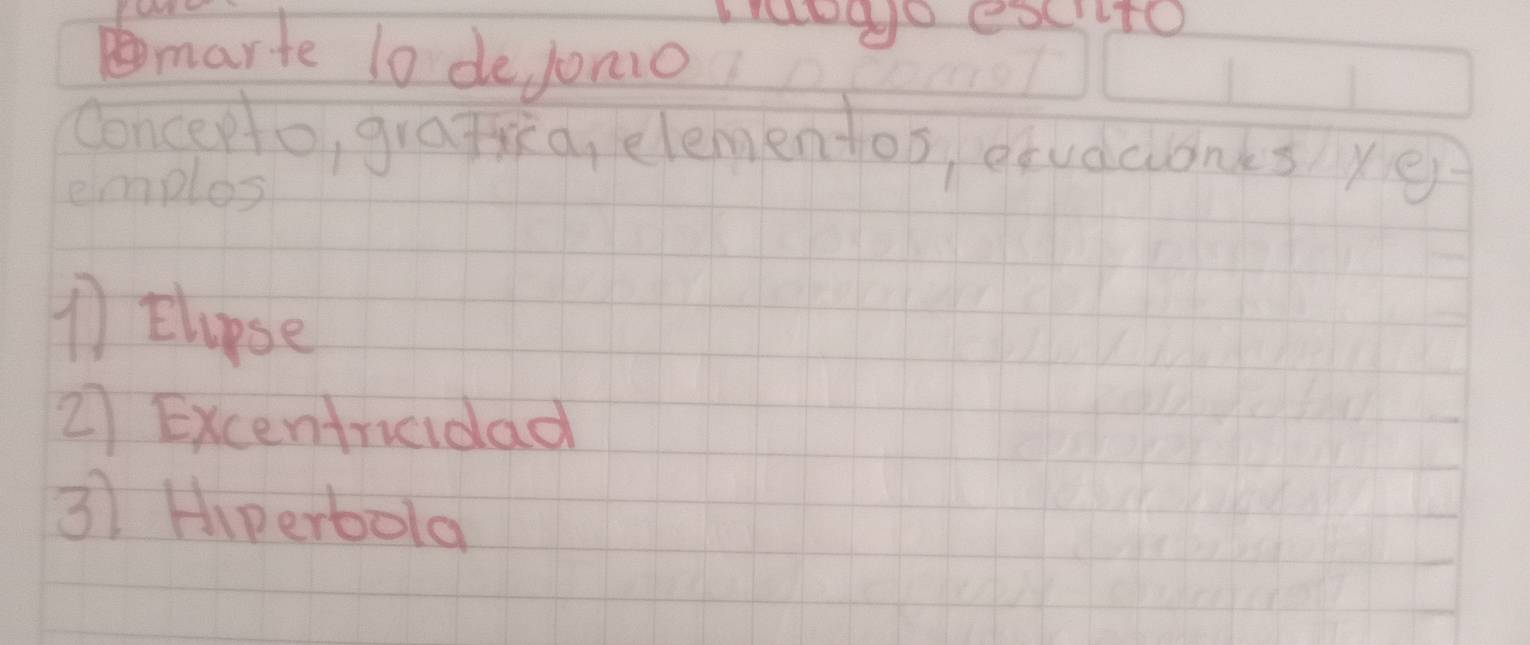 Trabajo escrito
marte 10 de Jonio
Concepto, grafica, elementos, ecuaciones y ej-
emplos
1) Elipse
2) Excentricidad
3) Hiperbola